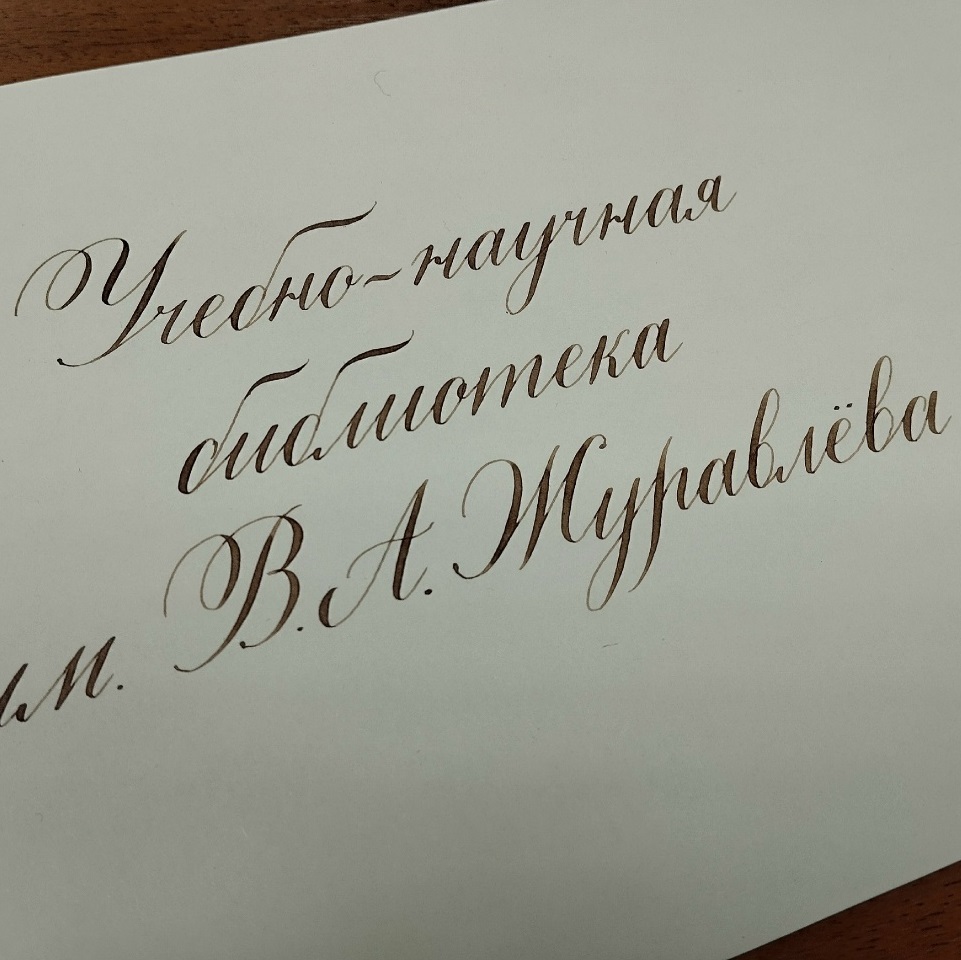 Учебно-научная
библиотека
им. В.А. Журавлёва